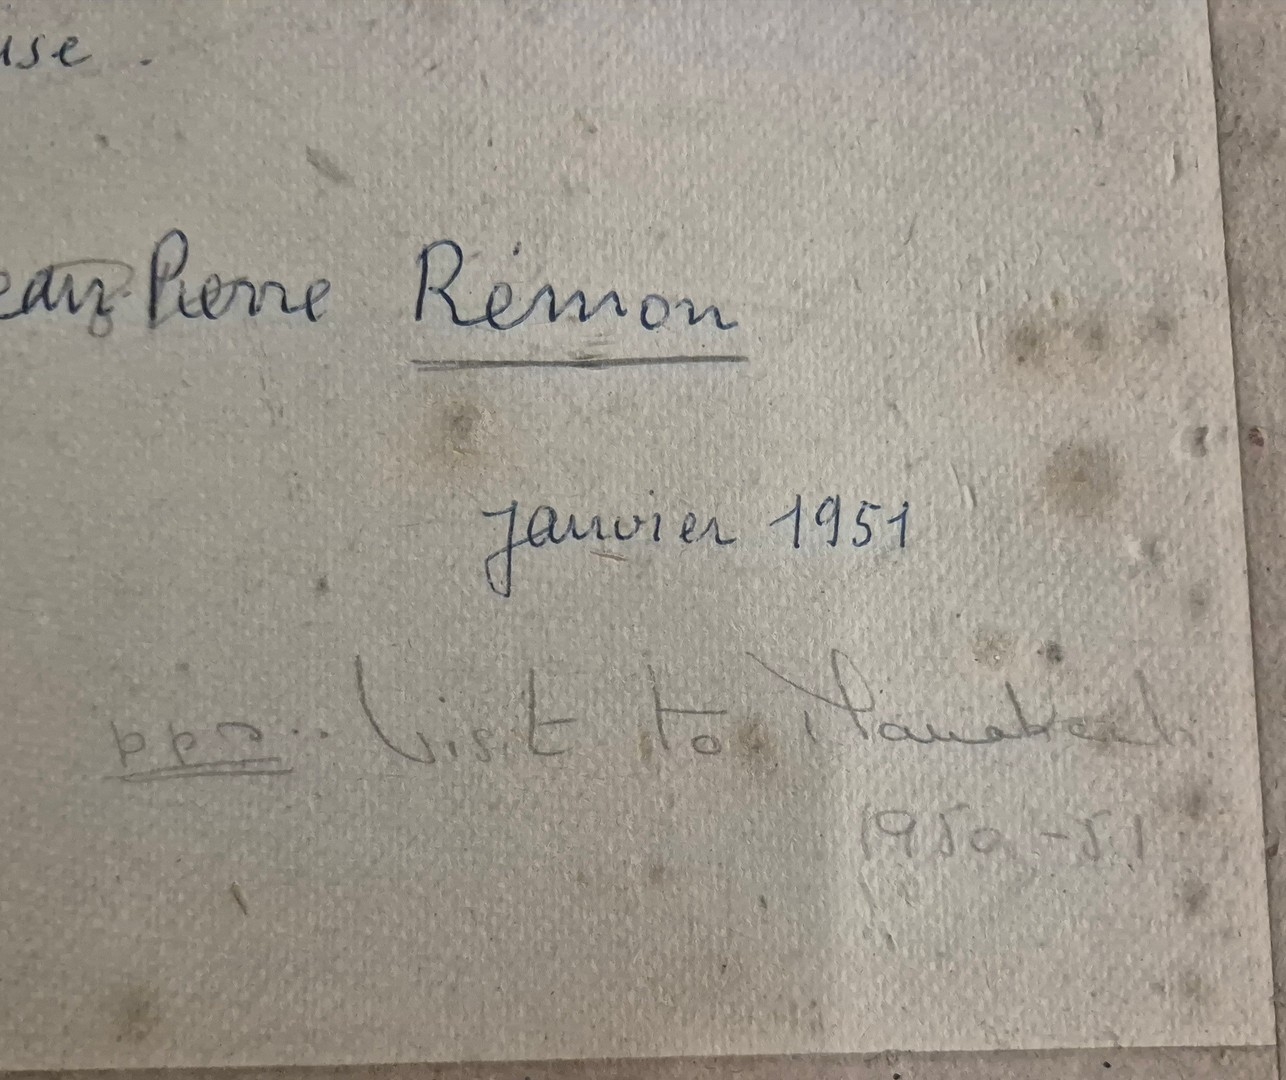 use.
ean-Pierre Rémon
Janvier 1951
Visit to Marrakech
1950-51